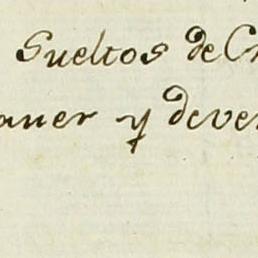 Sueltos de C
aner y deve